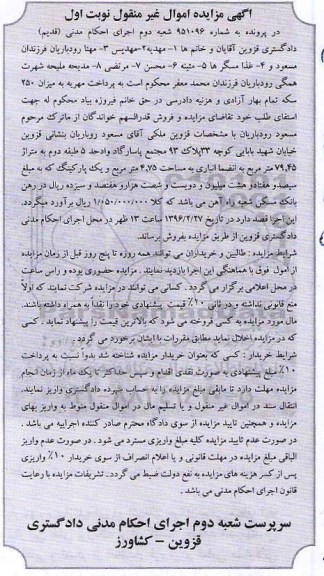 آگهی مزایده اموال غیر منقول نوبت اول
در پرونده به شماره ۹۵۱۰۹۶ شعبه دوم اجرای احکام مدنی (قدیم)
دادگستری قزوین آقایان و خانم ها ۱- مهدیه ۲-مهدیس ۳- مهتا رودباریان فرزندان
مسعود و ۴- غذا مسگر ها ۵- مثینه ۶- محسن ۷- مرتضی ۸- مدیحه ملیحه شهرت
همگی رودباریان فرزندان محمد معفر محکوم است به پرداخت مهریه به میزان ۲۵۰
سکه تمام بهار آزادی و هزینه دادرسی در حق خانم فیروزه بیاد محکوم له جهت
استفای طلب خود تقاضای مزایده و فروش قدرالسهم خواندگان از ماترک مرحوم
مسعود رودباریان با مشخصات قزوین ملکی آقای مسعود رودباریان بنشانی قزوین
خیابان شهید بابایی کوچه ۳۳پلاک ۹۳ مجتمع پاسارگاد واحد ۵ طبقه دوم به متراژ
۷۹,۴۵ متر مربع به انضما انباری به مساحت ۴,۷۵ متر مربع و یک پارکینگ که به مبلغ
سیصدو هفتادو هشت میلیون و دویست و شصت هزارو هفتصد و سیزده ریال در رهن
بانک مسکن شعبه راه آهن می باشد که کلا ۱/۰۵۰/۰۰۰/۰۰۰ ریال برآورد میگردد.
این اجرا قصد دارد در تاریخ ۱۳۹۶/۲/۲۷ ساعت ۱۳ ظهر در محل اجرای احکام مدنی
دادگستری قزوین از طریق مزایده بفروش برساند.
شرایط مزایده : طالبین و خریداران می توانند همه روزه تا پنج روز قبل از زمان مزایده
از اموال فوق با هماهنگی این اجرا بازدید نمایند . مزایده حضوری بوده و راس ساعت
در محل اعلامی برگزار می گردد . کسانی می توانند در مزایده شرکت نمایند که اولاً
منع قانونی نداشته و در ثانی ۱۰٪ قیمت پیشنهادی خود را نقداً به همراه داشته باشند.
مال مورد مزایده به کسی فروخته می شود که بالاترین قیمت را پیشنهاد نماید . کسی
که در مزایده اخلال نماید مطابق مقررات با ایشان برخورد می گردد .
شرایط خریدار : کسی که بعنوان خریدار مزایده شناخته شد بدوا نسبت به پرداخت
۱۰٪ مبلغ پیشنهادی به صورت نقدی اقدام و سپس حداکثر تا یک ماه از زمان انجام
مزایده مهلت دارد تا مابقی مبلغ مزایده را به حساب سپرده دادگستری واریز نمایند.
انتقال سند در اموال غیر منقول و یا تسلیم مال در اموال منقول منوط به واریز بهای
مزایده و همچنین تایید مزایده از سوی دادگاه محترم صادر کننده اجراییه می باشد .
در صورت عدم تایید مزایده کلیه مبلغ واریزی مسترد می شود . در صورت عدم واریز
الباقی مبلغ مزایده در مهلت قانونی و یا اعلام انصراف از سوی خریدار ۱۰٪ واریزی
پس از کسر هزینه های مزایده به نفع دولت ضبط می گردد . تشریفات مزایده با رعایت
قانون اجرای احکام مدنی می باشد .
سرپرست شعبه دوم اجرای احکام مدنی دادگستری
قزوین - کشاورز